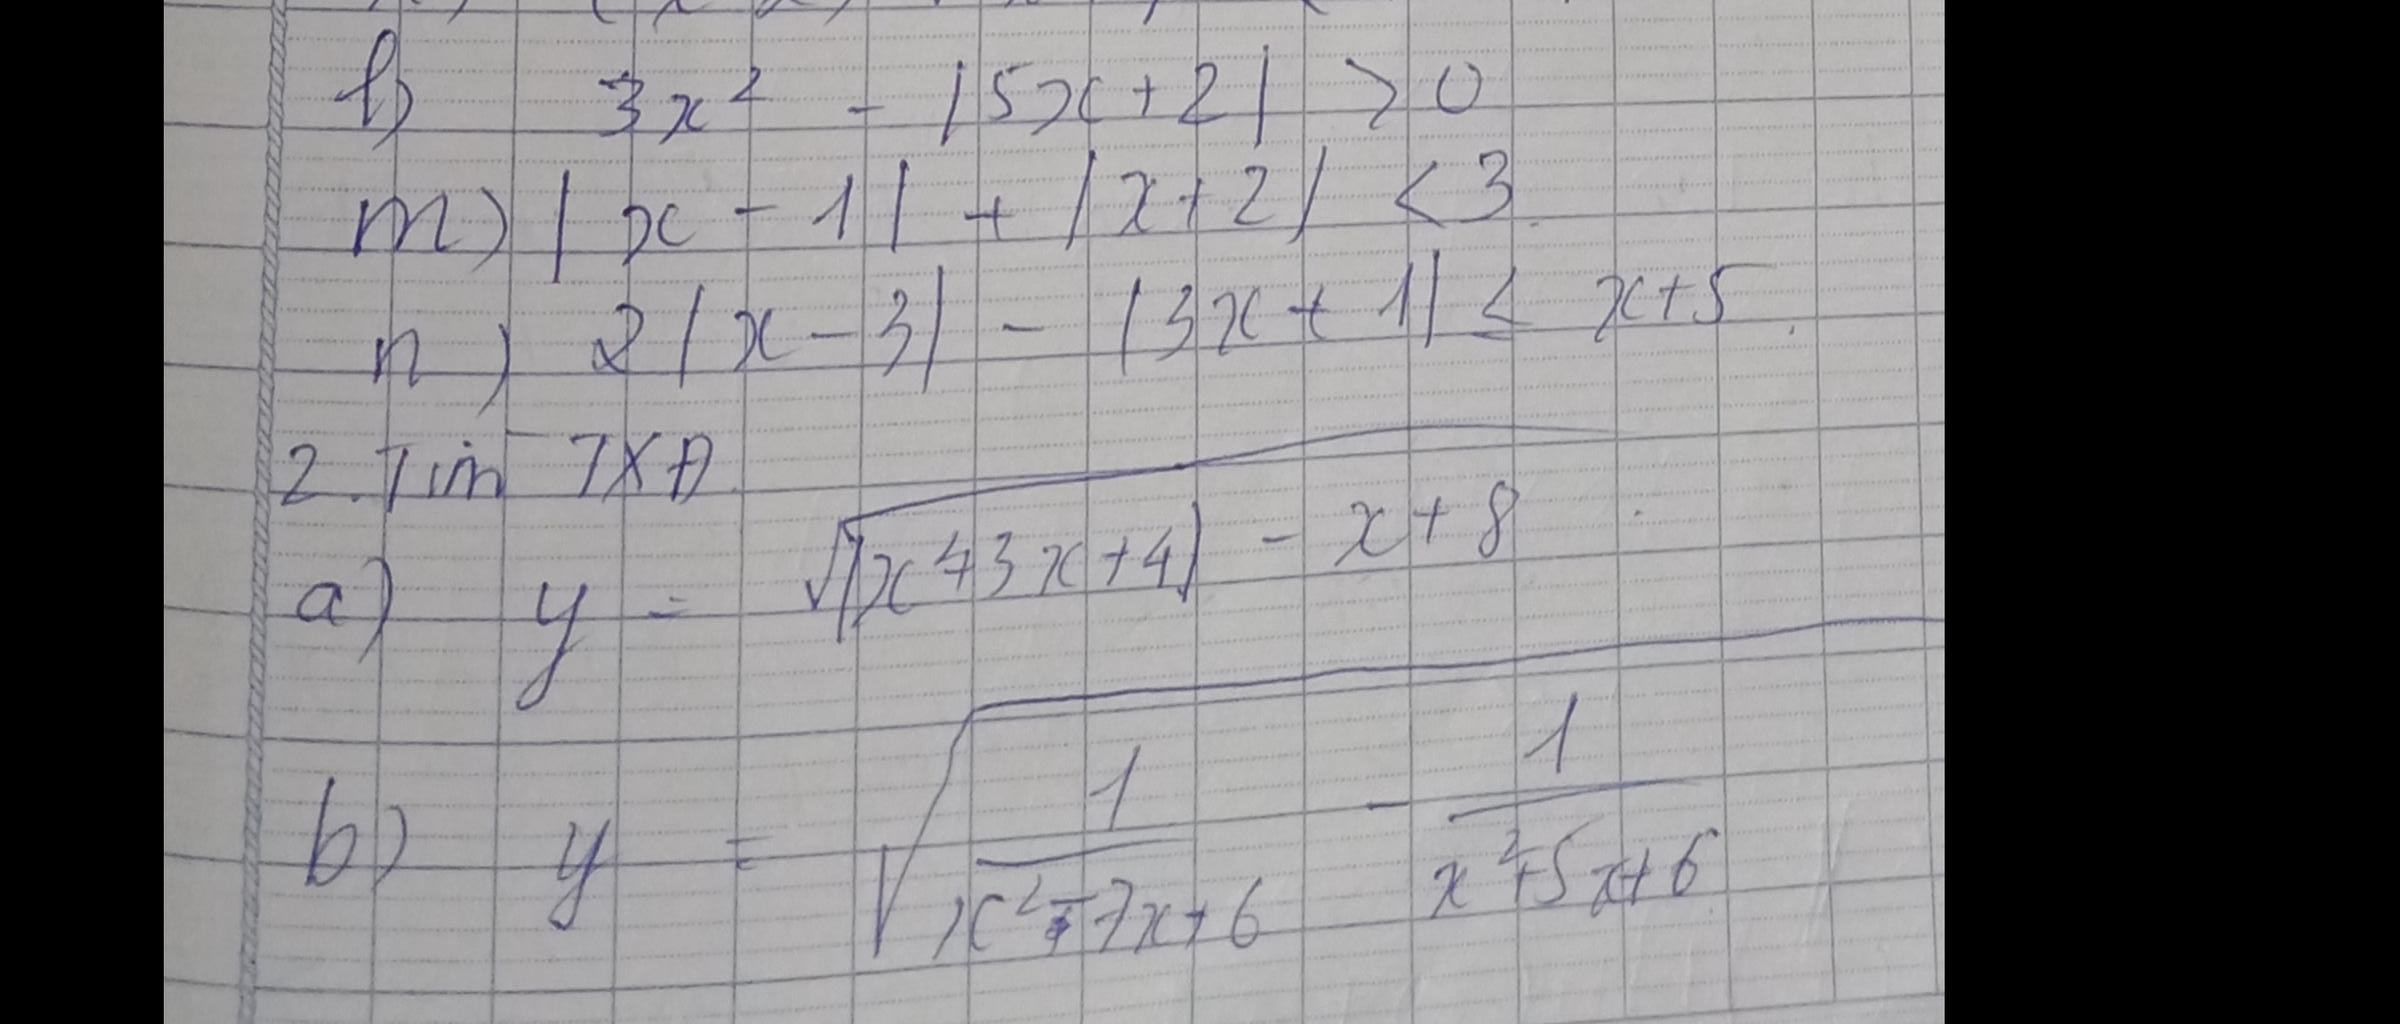 l) 3x² - |5x+2| > 0
m) |x - 1| + |x+2| < 3
n) 2|x - 3| - |3x + 1| ≤ x+5
2. Tìm TXĐ
a) y = √(|x²+3x+4| - x+8)
b) y = √(1/(x²-7x+6) - 1/(x²+5x+6))